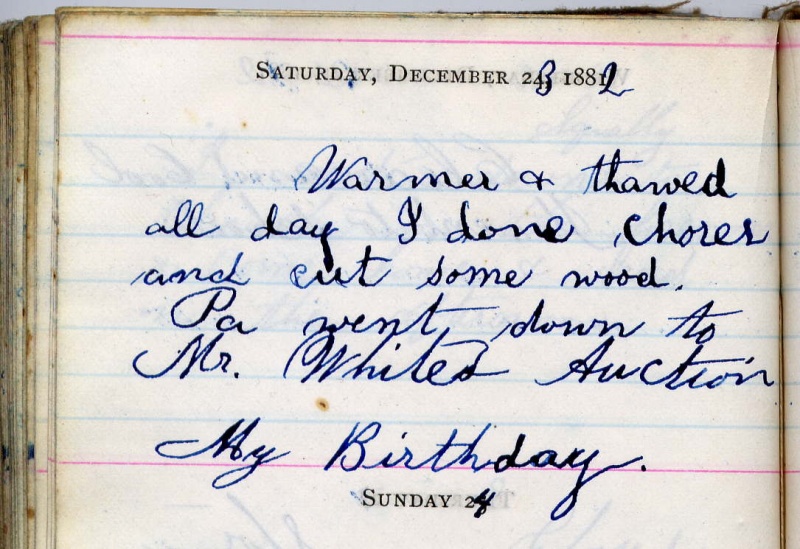 SATURDAY, DECEMBER 23, 1882
Warmer & thawed
all day I done chores
and cut some wood.
Pa went down to
Mr. Whites Auction
My Birthday.
SUNDAY 24